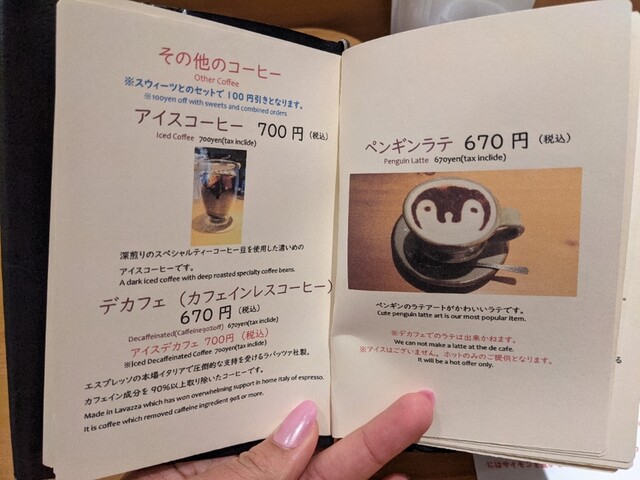 その他のコーヒー
Other Coffee
※スウィーツとのセットで 100 円引きとなります。
※100yen off with sweets and combined orders
アイスコーヒー 700 円 (税込)
Iced Coffee 700yen(tax inclide)
深煎りのスペシャルティーコーヒー豆を使用した濃いめの
アイスコーヒーです。
A dark iced coffee with deep roasted specialty coffee beans.
デカフェ (カフェインレスコーヒー)
670 円 (税込)
Decaffeinated(Caffeine90%off) 670yen(tax inclide)
アイスデカフェ 700円 (税込)
※Iced Decaffeinated Coffee 700yen(tax inclide)
エスプレッソの本場イタリアで圧倒的な支持を受けるラバッツァ社製。
カフェイン成分を 90%以上取り除いたコーヒーです。
Made in Lavazza which has won overwhelming support in home Italy of espresso.
It is coffee which removed caffeine ingredient 90% or more.
ペンギンラテ 670 円 (税込)
Penguin Latte 670yen(tax inclide)
ペンギンのラテアートがかわいいラテです。
Cute penguin latte art is our most popular item.
※デカフェでのラテは出来かねます。
We can not make a latte at the de cafe.
※アイスはございません。ホットのみのご提供となります。
It will be a hot offer only.